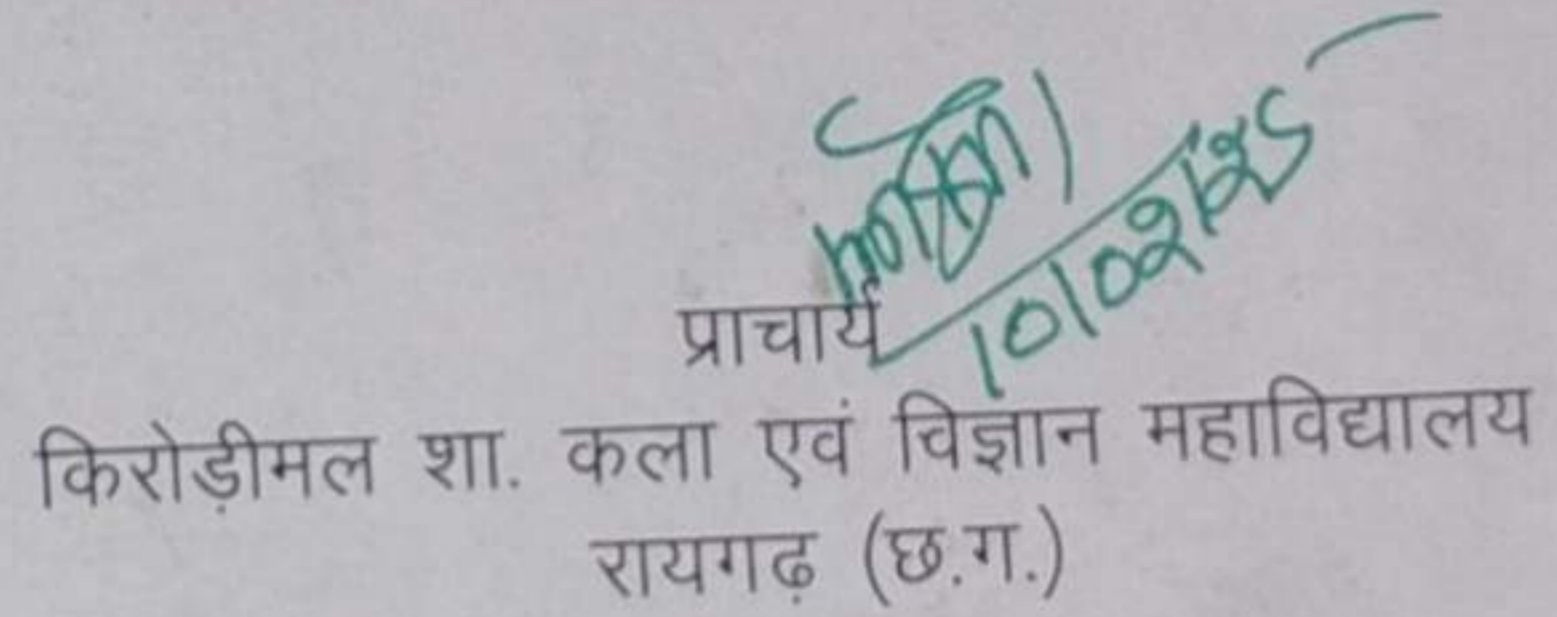 10/02/25
प्राचार्य
किरोड़ीमल शा. कला एवं विज्ञान महाविद्यालय
रायगढ़ (छ.ग.)